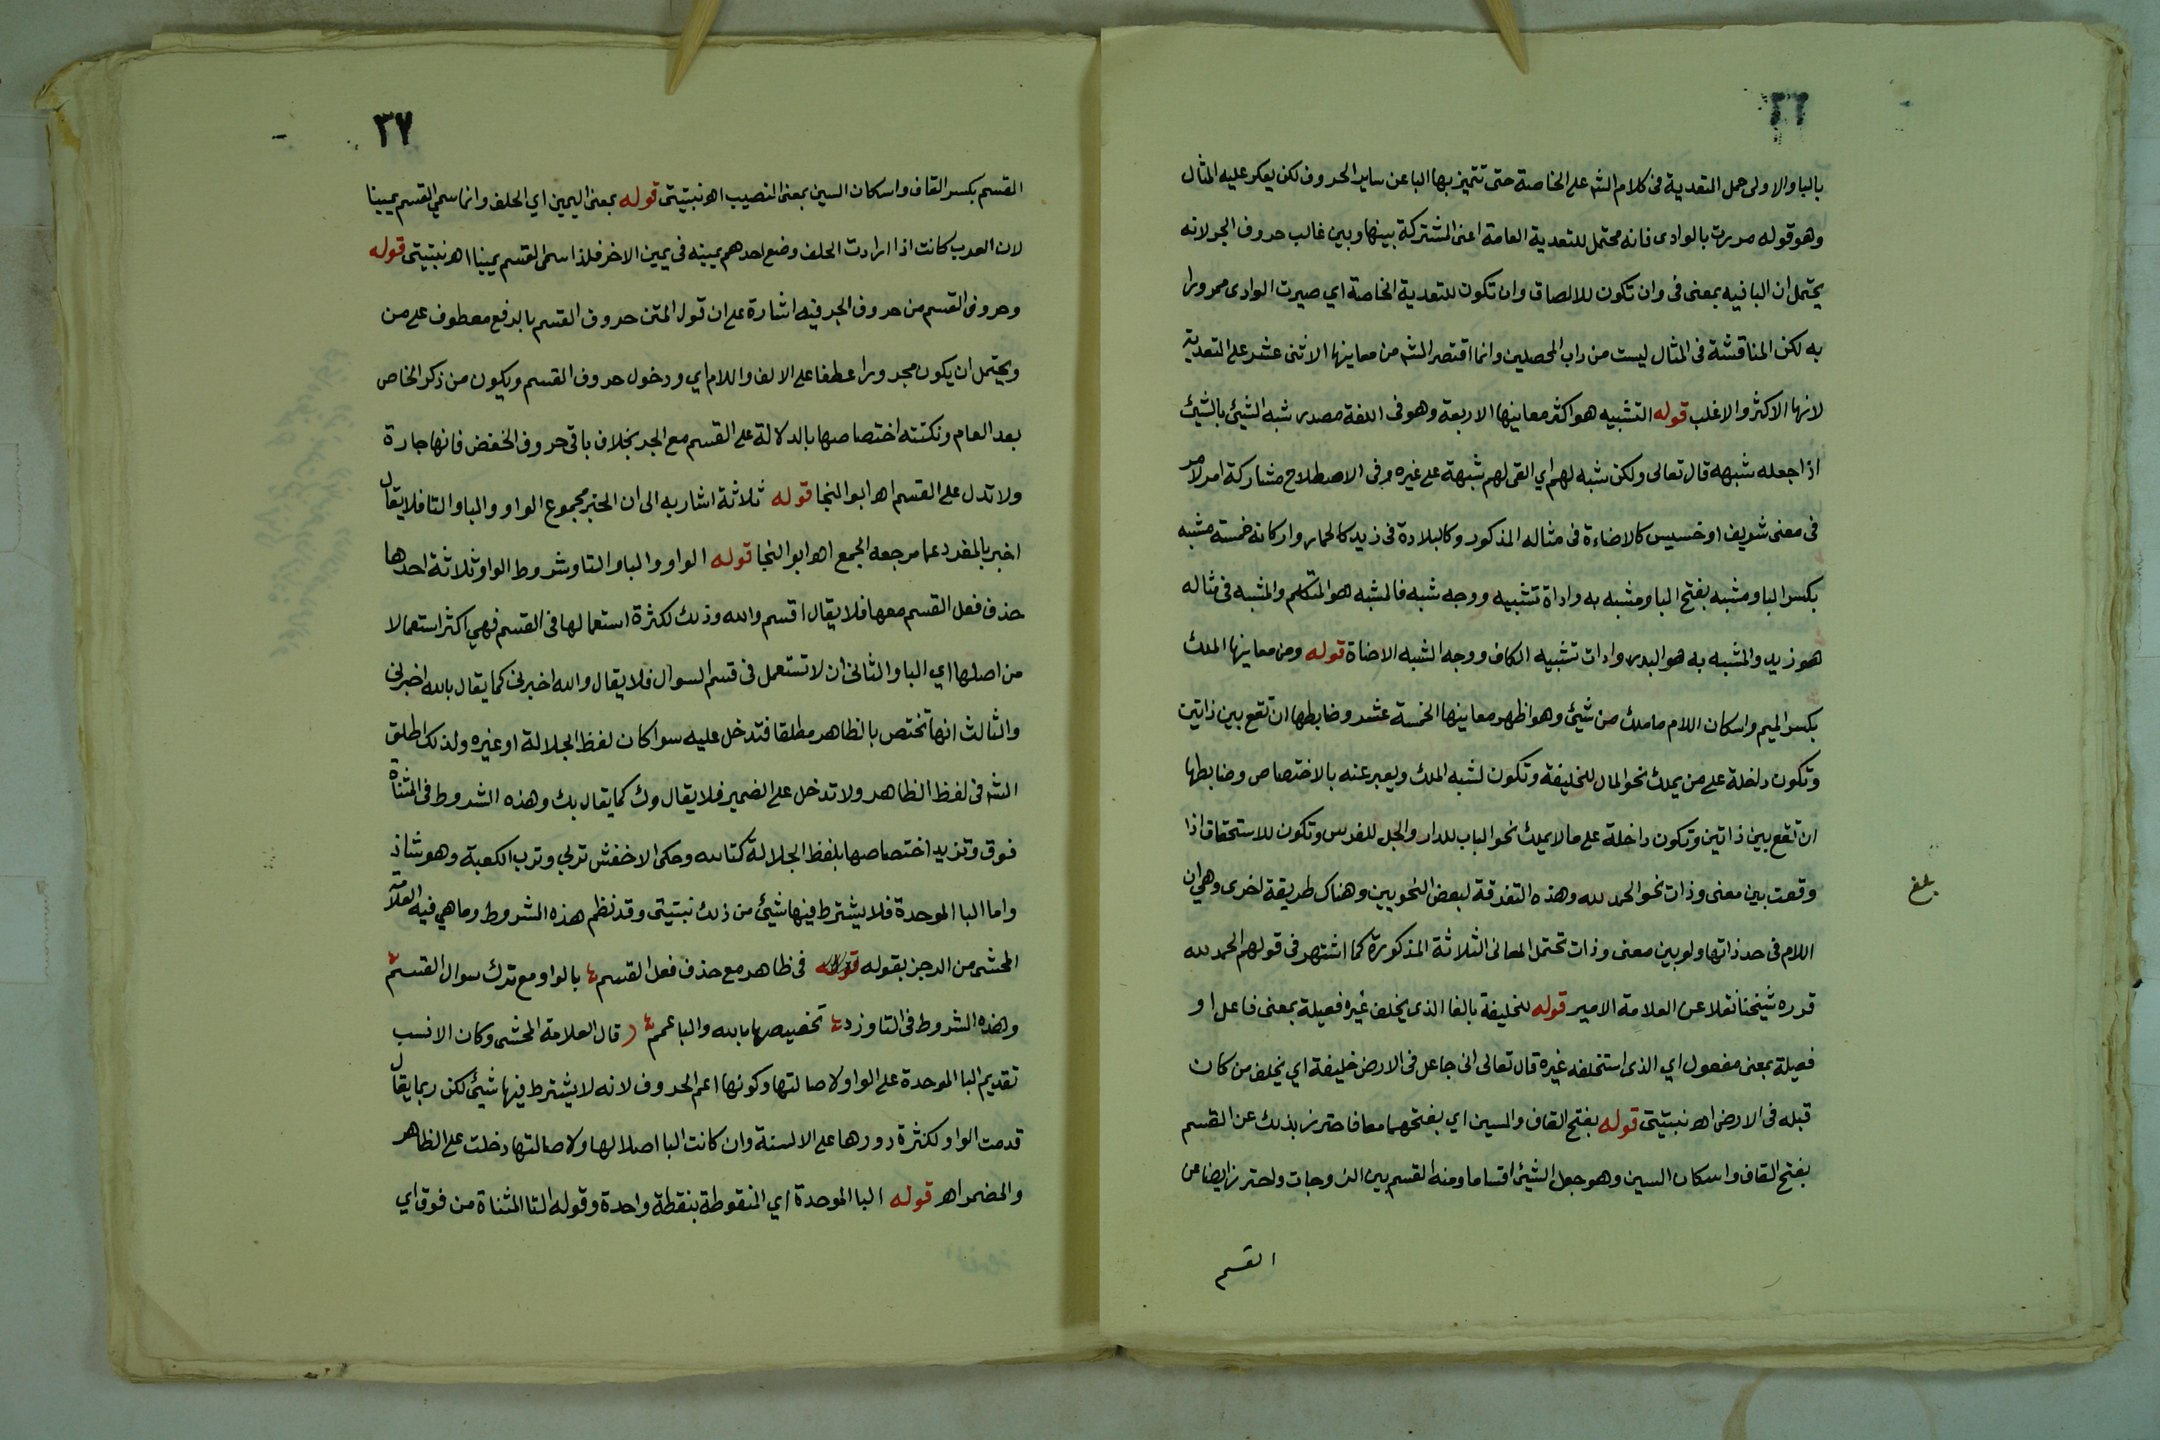 ٣٦
بالباوالاولى حمل التعدية في كلام الشه على الخاصة حتى تتميز بها الباعن ساير الحروف لكن يعكر عليه المثال
وهو قوله مررت بالوادى فانه محتمل للتعدية العامة اعنى المشتركة بينها وبين غالب حروف الجر لانه
يحتمل ان البا فيه بمعنى فى وان تكون للالصاق وان تكون للتعدية الخاصة اي صيرت الوادى مرورا
به لكن المناقشة فى المثال ليست من داب المحصلين وانما اقتصر الشه من معاينها الاثنى عشر على التعدية
لانها الاكثر والاغلب قوله التشبيه هو اكثر معاينها الاربعة وهو فى اللغة مصدر شبه الشيئ بالشيئ
اذا جعله شبهه قال تعالى ولكن شبه لهم اي القى لهم شبهة على غيره وفى الاصطلاح مشاركة امر لامر
فى معنى شريف او خسيس كالاضاءة فى مثاله المذكور وكالبلادة فى زيد كالحمار واركانه خمسة مشبه
بكسر البا ومشبه بفتح البا ومشبه به واداة تشبيه ووجه شبه فالمشبه هو المتكلم والمشبه فى مثاله
هو زيد والمشبه به هو البدر وادات تشبيه الكاف ووجه الشبه الاضاة قوله ومن معاينها الملك
بكسر الميم واسكان اللام ماملك من شيئ وهو اظهر معاينها الخمسة عشر وضابطها ان تقع بين ذاتين
وتكون داخلة على من يملك نحو المال للخليفة وتكون لشبه الملك ويعبر عنه بالاختصاص وضابطها
ان تقع بين ذاتين وتكون داخلة على مالا يملك نحو الباب للدار والجل للفرس وتكون للاستحقاق اذا
وقعت بين معنى وذات نحو الحمد لله وهذه التفرقة لبعض النحويين وهناك طريقة اخرى وهي ان
بلغ
اللام فى حد ذاتها ولو بين معنى وذات تحتمل المعانى الثلاثة المذكورة كما اشتهر فى قولهم الحمد لله
قرره شيخنا نقلا عن العلامة الامير قوله للخليفة بالفا الذى يخلف غيره فعيلة بمعنى فاعل او
فعيلة بمعنى مفعول اي الذى استخلفه غيره قال تعالى انى جاعل فى الارض خليفة اي يخلف من كان
قبله فى الارض اهـ نبتيتى قوله بفتح القاف والسين اي بفتحهما معا فاحترز بذلك عن القسم
بفتح القاف واسكان السين وهو جعل الشيئ اقساما ومنه القسم بين الزوجات واحترز ايضا عن
القسم
٣٧
القسم بكسر القاف واسكان السين بمعنى النصيب اهـ نبتيتى قوله بمعنى اليمين اي الحلف وانما سمي القسم يمينا
لان العرب كانت اذا ارادت الحلف وضع احدهم يمينه فى يمين الاخر فلذا سمى القسم يمينا اهـ نبتيتى قوله
وحروف القسم من حروف الجر فيه اشارة على ان قول المتن حروف القسم بالرفع معطوف على من
ويحتمل ان يكون مجرورا عطفا على الالف واللام اي ودخول حروف القسم ويكون من ذكر الخاص
بعد العام ونكتته اختصاصها بالدلالة على القسم مع الجر بخلاف باقى حروف الخفض فانها جارة
ولا تدل على القسم اهـ ابو النجا قوله ثلاثة اشار به الى ان الخبر مجموع الواو والبا والتا فلا يقال
اخبر بالمفرد عما مرجعه الجمع اهـ ابو النجا قوله الواو والبا والتا وشروط الواو ثلاثة احدها
حذف فعل القسم معها فلا يقال اقسم والله وذلك لكثرة استعمالها فى القسم فهي اكثر استعمالا
من اصلها اي البا والثانى ان لا تستعمل فى قسم السوال فلا يقال والله اخبرنى كما يقال بالله اخبرنى
والثالث انها تختص بالظاهر مطلقا فتدخل عليه سوا كان لفظ الجلالة او غيره ولذلك اطلق
الشه فى لفظ الظاهر ولا تدخل على الضمير فلا يقال وك كما يقال بك وهذه الشروط فى المثناة
فوق وتزيد اختصاصها بلفظ الجلالة كتالله وحكى الاخفش تربي وترب الكعبة وهو شاذ
واما البا الموحدة فلا يشترط فيها شيئ من ذلك نبتيتى وقد نظم هذه الشروط وما هي فيه العلامة
المحشى من الرجز بقوله فى ظاهر مع حذف فعل القسم بالواو مع ترك سوال القسم
وهذه الشروط فى التا وزد تخصيصها بالله والبا عمم قال العلامة المحشى وكان الانسب
تقديم البا الموحدة على الواو لاصالتها وكونها اعم الحروف لانه لا يشترط فيها شيئ لكن ربما يقال
قدمت الواو لكثرة دورها على الالسنة وان كانت البا اصلا لها ولاصالتها دخلت على الظاهر
والمضمر اهـ قوله البا الموحدة اي المنقوطة بنقطة واحدة وقوله التا المثناة من فوق اي